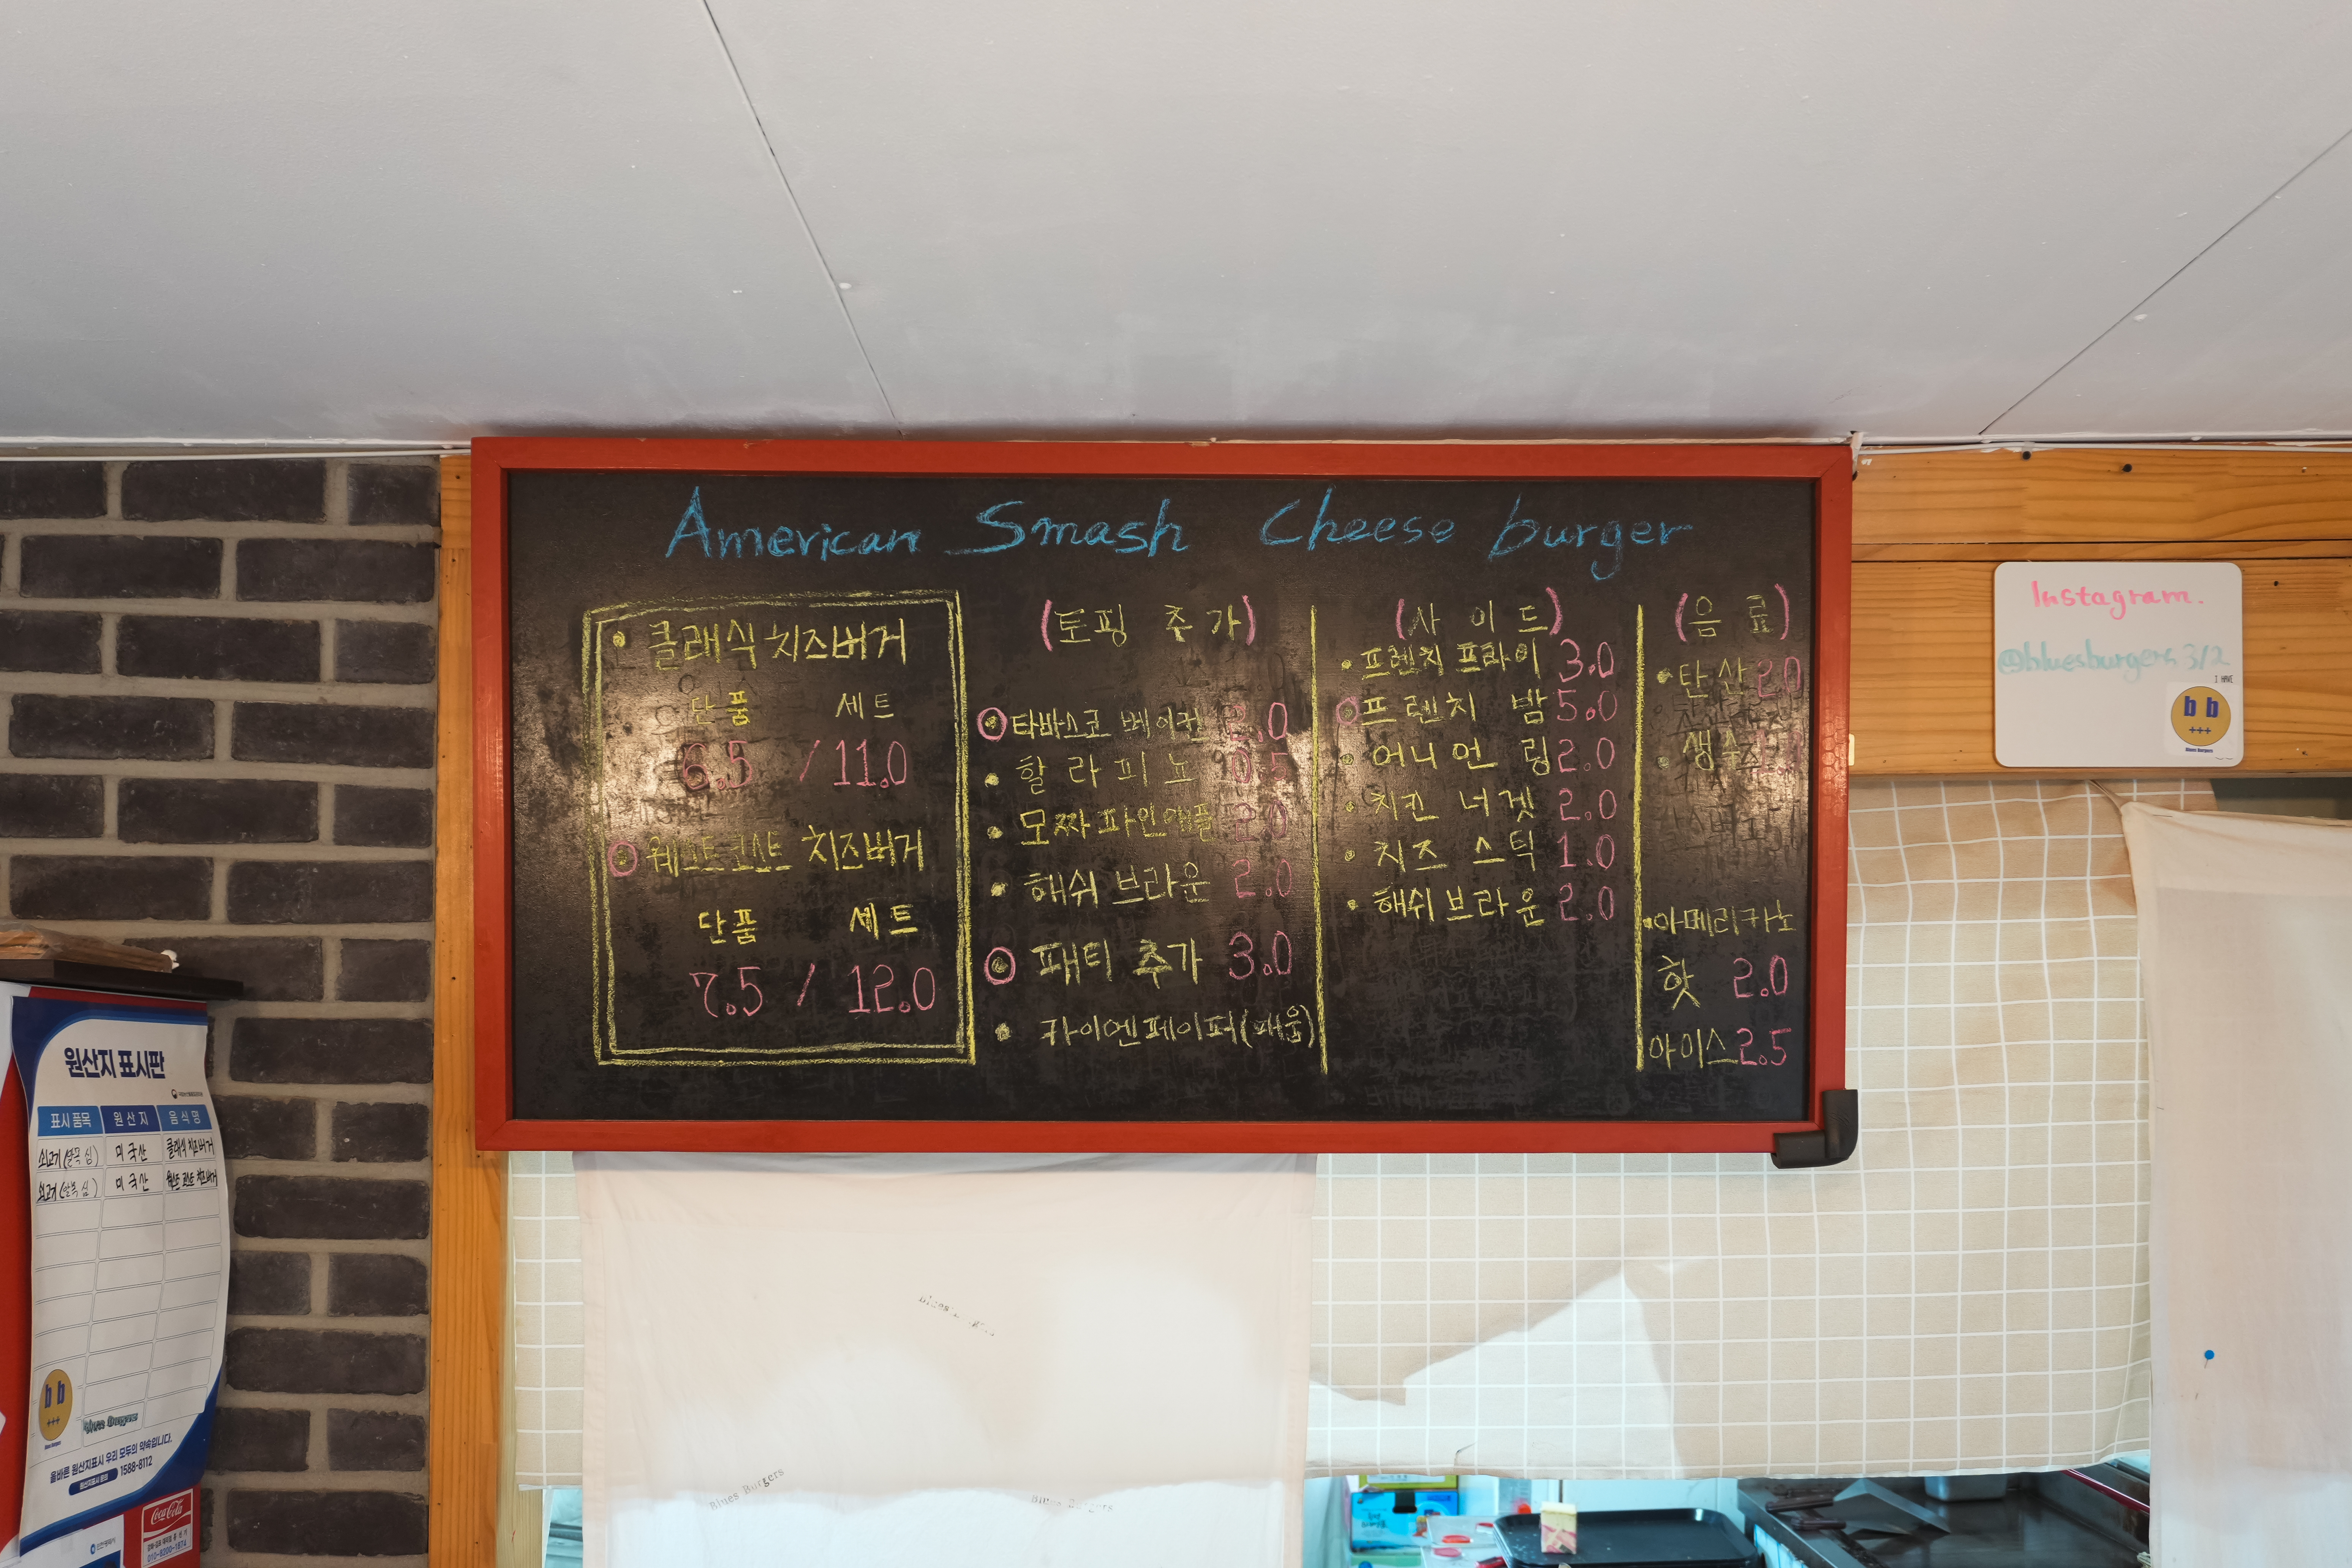 American Smash Cheese burger
클래식 치즈버거
단품 세트
6.5 / 11.0
웨스트코스트 치즈버거
단품 세트
7.5 / 12.0
(토핑 추가)
타바스코 베이컨 2.0
할라피뇨 0.5
모짜파인애플 2.0
해쉬브라운 2.0
패티 추가 3.0
카이엔페이퍼(매움)
(사이드)
프렌치 프라이 3.0
프렌치 밤 5.0
어니언 링 2.0
치킨 너겟 2.0
치즈 스틱 1.0
해쉬브라운 2.0
(음료)
탄산 2.0
생수
아메리카노
핫 2.0
아이스 2.5
Instagram.
@bluesburgers312
I HAVE
b b
+++
Blues Burgers
원산지 표시판
표시품목 원산지 음식명
쇠고기 미국산 클래식 치즈버거
쇠고기 미국산 웨스트코스트 치즈버거
b b
+++
Blues Burgers
Blues Burgers
올바른 원산지표시 우리 모두의 약속입니다.
원산지표시 문의 1588-8112
Coca-Cola
010-9200-1874
Blues Burgers
Blues Burgers